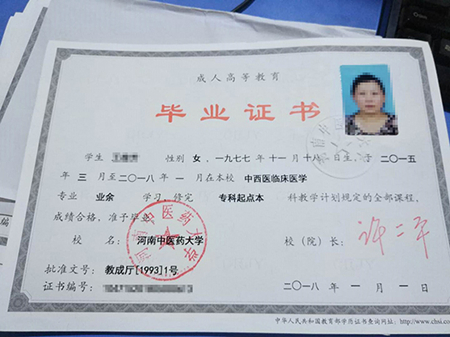 成人高等教育
毕业证书
学生 性别 女，一九七七年十一月十八日生，于二〇一五
年三月至二〇一八年一月在本校 中西医临床医学
专业 业余 学习，修完 专科起点本 科教学计划规定的全部课程，
成绩合格，准予毕业。
校名：河南中医药大学 校（院）长：许二平
批准文号：教成厅[1993]1号
证书编号： 二〇一八年一月一日
河南中医药大学
中华人民共和国教育部学历证书查询网址：http://www.chsi.co